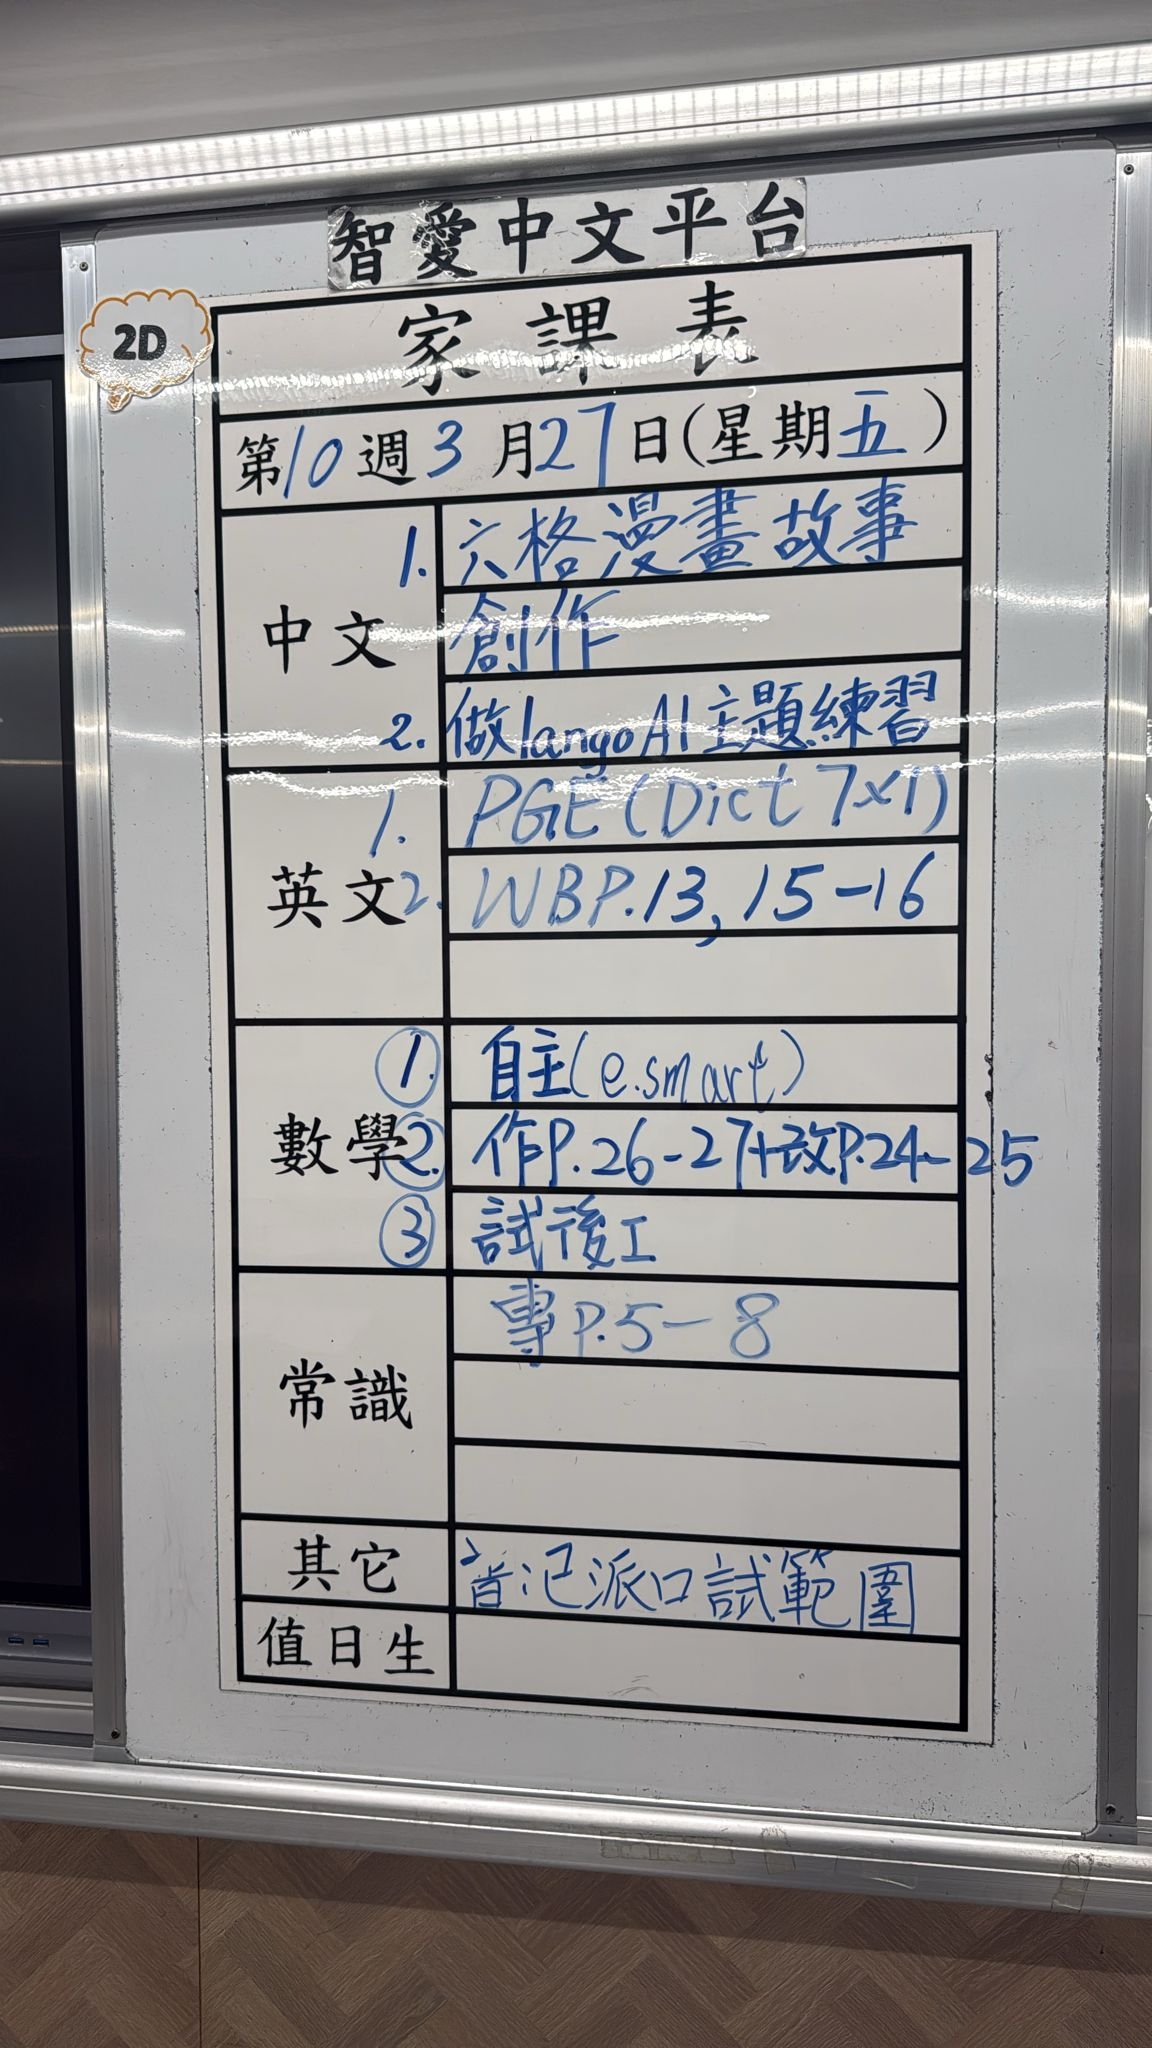 智愛中文平台
2D
家課表
第10週3月27日(星期五)
中文
1. 六格漫畫故事
創作
2. 做langoAI主題練習
英文
1. PGE(Dict 7x1)
2. WBP.13, 15-16
數學
①. 自主(e.smart)
②. 作P.26-27+改P.24-25
③ 試後工
常識
專P.5-8
其它
派口試範圍
值日生